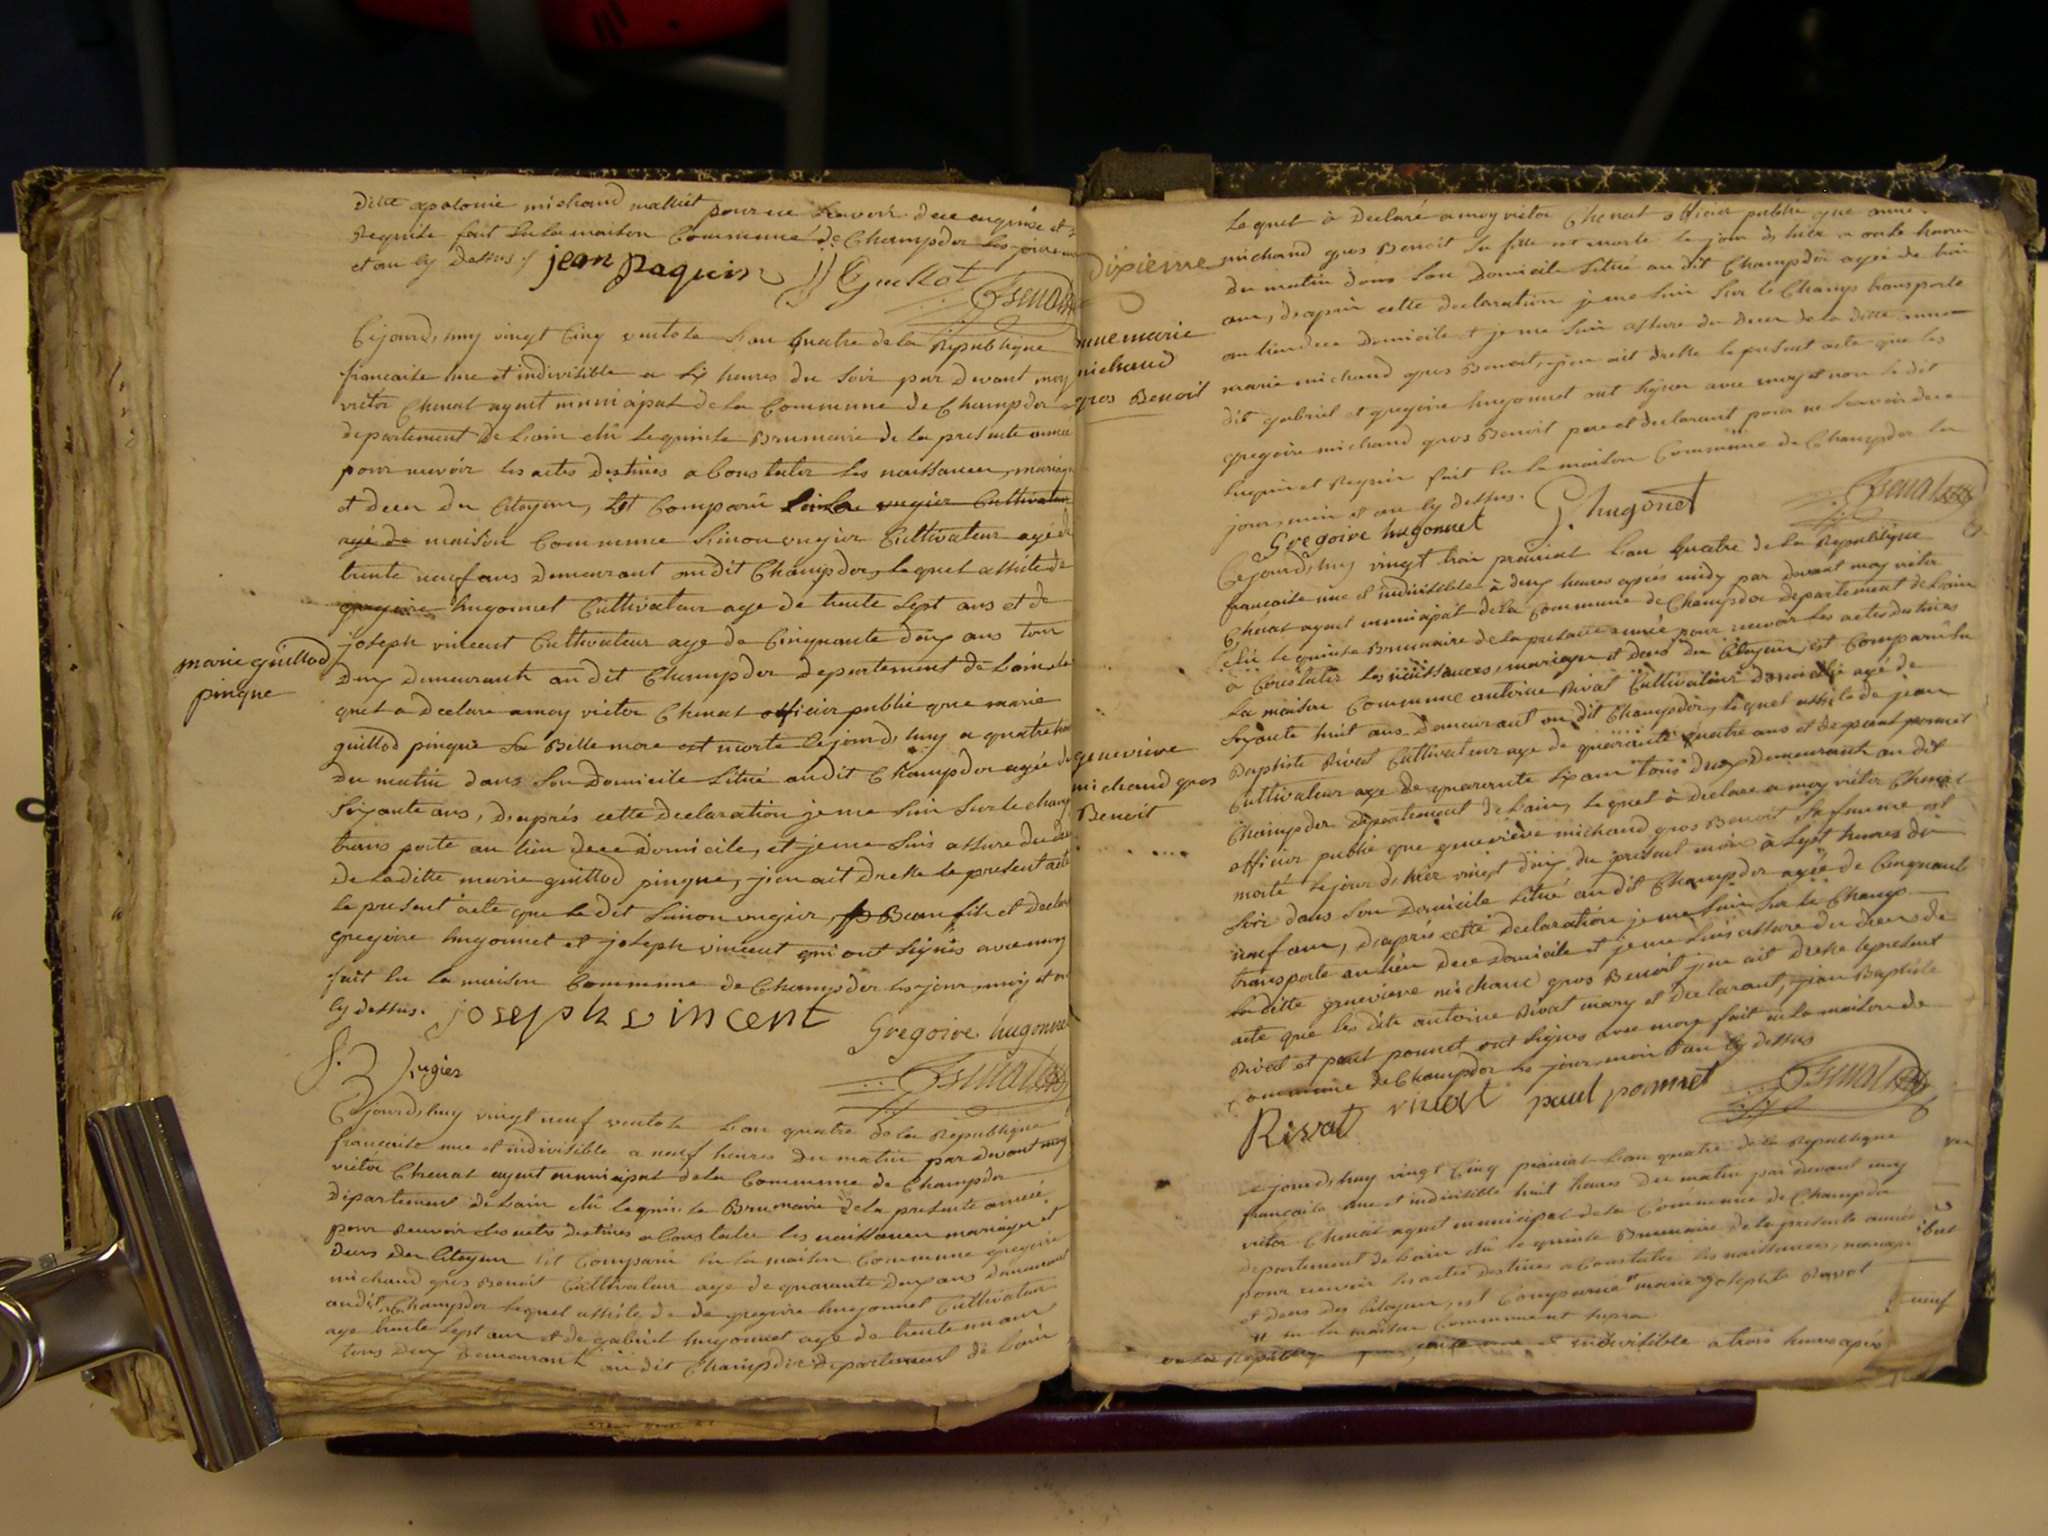 ditte apolonie michaud mallict pour ce servoir dece enquise et
Requise fait en la maison Commune de Champdor les jour
et an cy dessus. jean paquin JJ Guillot Chenat
Cejourd,huy vingt Cinq ventose l'an quatre de la Republique
francaise une et indivisible a six heures du soir par devant moy
victor Chenat agent municipal de la Commune de Champdor
departement de Lain elû le quinse Brumaire de la presente année
pour recevoir les actes destines a Constater les naissances, mariage
et deces du Citoyens, est Comparû en la rugier Cultivateur
agé de maison Commune Simon rugier Cultivateur agé de
trente neuf ans demeurant au dit Champdor, lequel assisté de
gregoire hugonnet Cultivateur age de trente sept ans et de
joseph vincent Cultivateur age de Cinquante deux ans tous
marie guillod
pingue
deux demeurants au dit Champdor departement de Lain, le
quel a declare a moy victor Chenat officier public que marie
guillod pingue sa Belle mere est morte cejourd,huy a quatre heures
du matin dans son domicile situé au dit Champdor agée de
soixante ans, d'aprés cette declaration je me suis sur le champ
transporte au lieu de ce domicile, et je me suis assure du deces
de laditte marie guillod pingue, j'en ait dresse le present acte
le present acte que le dit Simon rugier, Beau fils et declarant
gregoire hugonnet et joseph vincent qui ont signés avec moy
fait en la maison Commune de Champdor les jour mois et an
cy dessus. joseph vincent Gregoire hugonnet
S. Rugier Chenat
Cejourd,huy vingt neuf ventose l'an quatre de la Republique
francaise une et indivisible a neuf heures du matin par devant moy
victor Chenat agent municipal de la Commune de Champdor
departement de Lain elû le quinse Brumaire de la presente année
pour recevoir les actes destines a Constater les naissances mariages et
deces des Citoyens est Comparû en la maison Commune gregoire
michaud gros Benoit Cultivateur age de quarante deux ans demeurant
audit Champdor lequel assiste de de gregoire hugonnet Cultivateur
age trente sept ans et de gabriel hugonnet age de trente un ans
tous deux demeurant au dit Champdor departement de Lain
lequel à declaré a moy victor Chenat officier public que anne
Dixieme
michaud gros Benoit sa fille est morte le jour d,hier a onze heures
du matin dans son domicile situé au dit Champdor agée de trois
ans, d'aprés cette declaration je me suis sur le Champ transporte
anne marie
michaud
gros Benoit
au lieu de ce domicile et je me suis assure du deces de la ditte anne
marie michaud gros Benoit, j'en ait dresse le present acte que les
dit gabriel et gregoire hugonnet ont signer avec moy et non le dit
gregoire michaud gros Benoit pere et declarant pour ne scavoir de ce
enquis et Requis fait en la maison Commune de Champdor les
jour, mois et an cy dessus.
Gregoire hugonnet G. hugonet Chenat
Cejourd,huy vingt trois prairial l'an quatre de la Republique
francaise une et indivisible à deux heures aprés midy par devant moy victor
Chenat agent municipal de la Commune de Champdor departement de Lain
elû le quinse Brumaire de la presente année pour recevoir les actes destines
à Constater les naissances, mariages et deces du Citoyens, est Comparû en
la maison Commune antoine Rivat Cultivateur domicilié agé de
soixante huit ans demeurant au dit Champdor, lequel assisté de jean
genevieve
michaud gros
Benoit
Baptiste Rivat Cultivateur age de quarante quatre ans et de paul ponnet
Cultivateur age de quarante six ans tous deux demeurants au dit
Champdor departement de Lain, lequel à declare a moy victor Chenat
officier public que genevieve michaud gros Benoit sa femme est
morte le jour d,hier vingt deux du present mois à sept heures du
soir dans son domicile situé au dit Champdor agée de Cinquante
neuf ans, d'aprés cette declaration je me suis sur le Champ
transporte au lieu de ce domicile et je me suis assure du deces de
la ditte genevieve michaud gros Benoit j'en ait dresse le present
acte que les dits antoine Rivat mary et declarant, jean Baptiste
Rivat et paul ponnet ont signes avec moy fait en la maison de
Commune de Champdor les jour mois et an cy dessus
Rivat rivat paul ponnet Chenat
Cejourd,huy vingt Cinq prairial l'an quatre de la Republique
francaise une et indivisible huit heures du matin par devant moy
victor Chenat agent municipal de la Commune de Champdor
departement de Lain elû le quinse Brumaire de la presente année
pour recevoir les actes destines a Constater les naissances, mariages
et deces des Citoyens, est Comparue marie josephte Ravot
en la maison Commune
indivisible a trois heures aprés